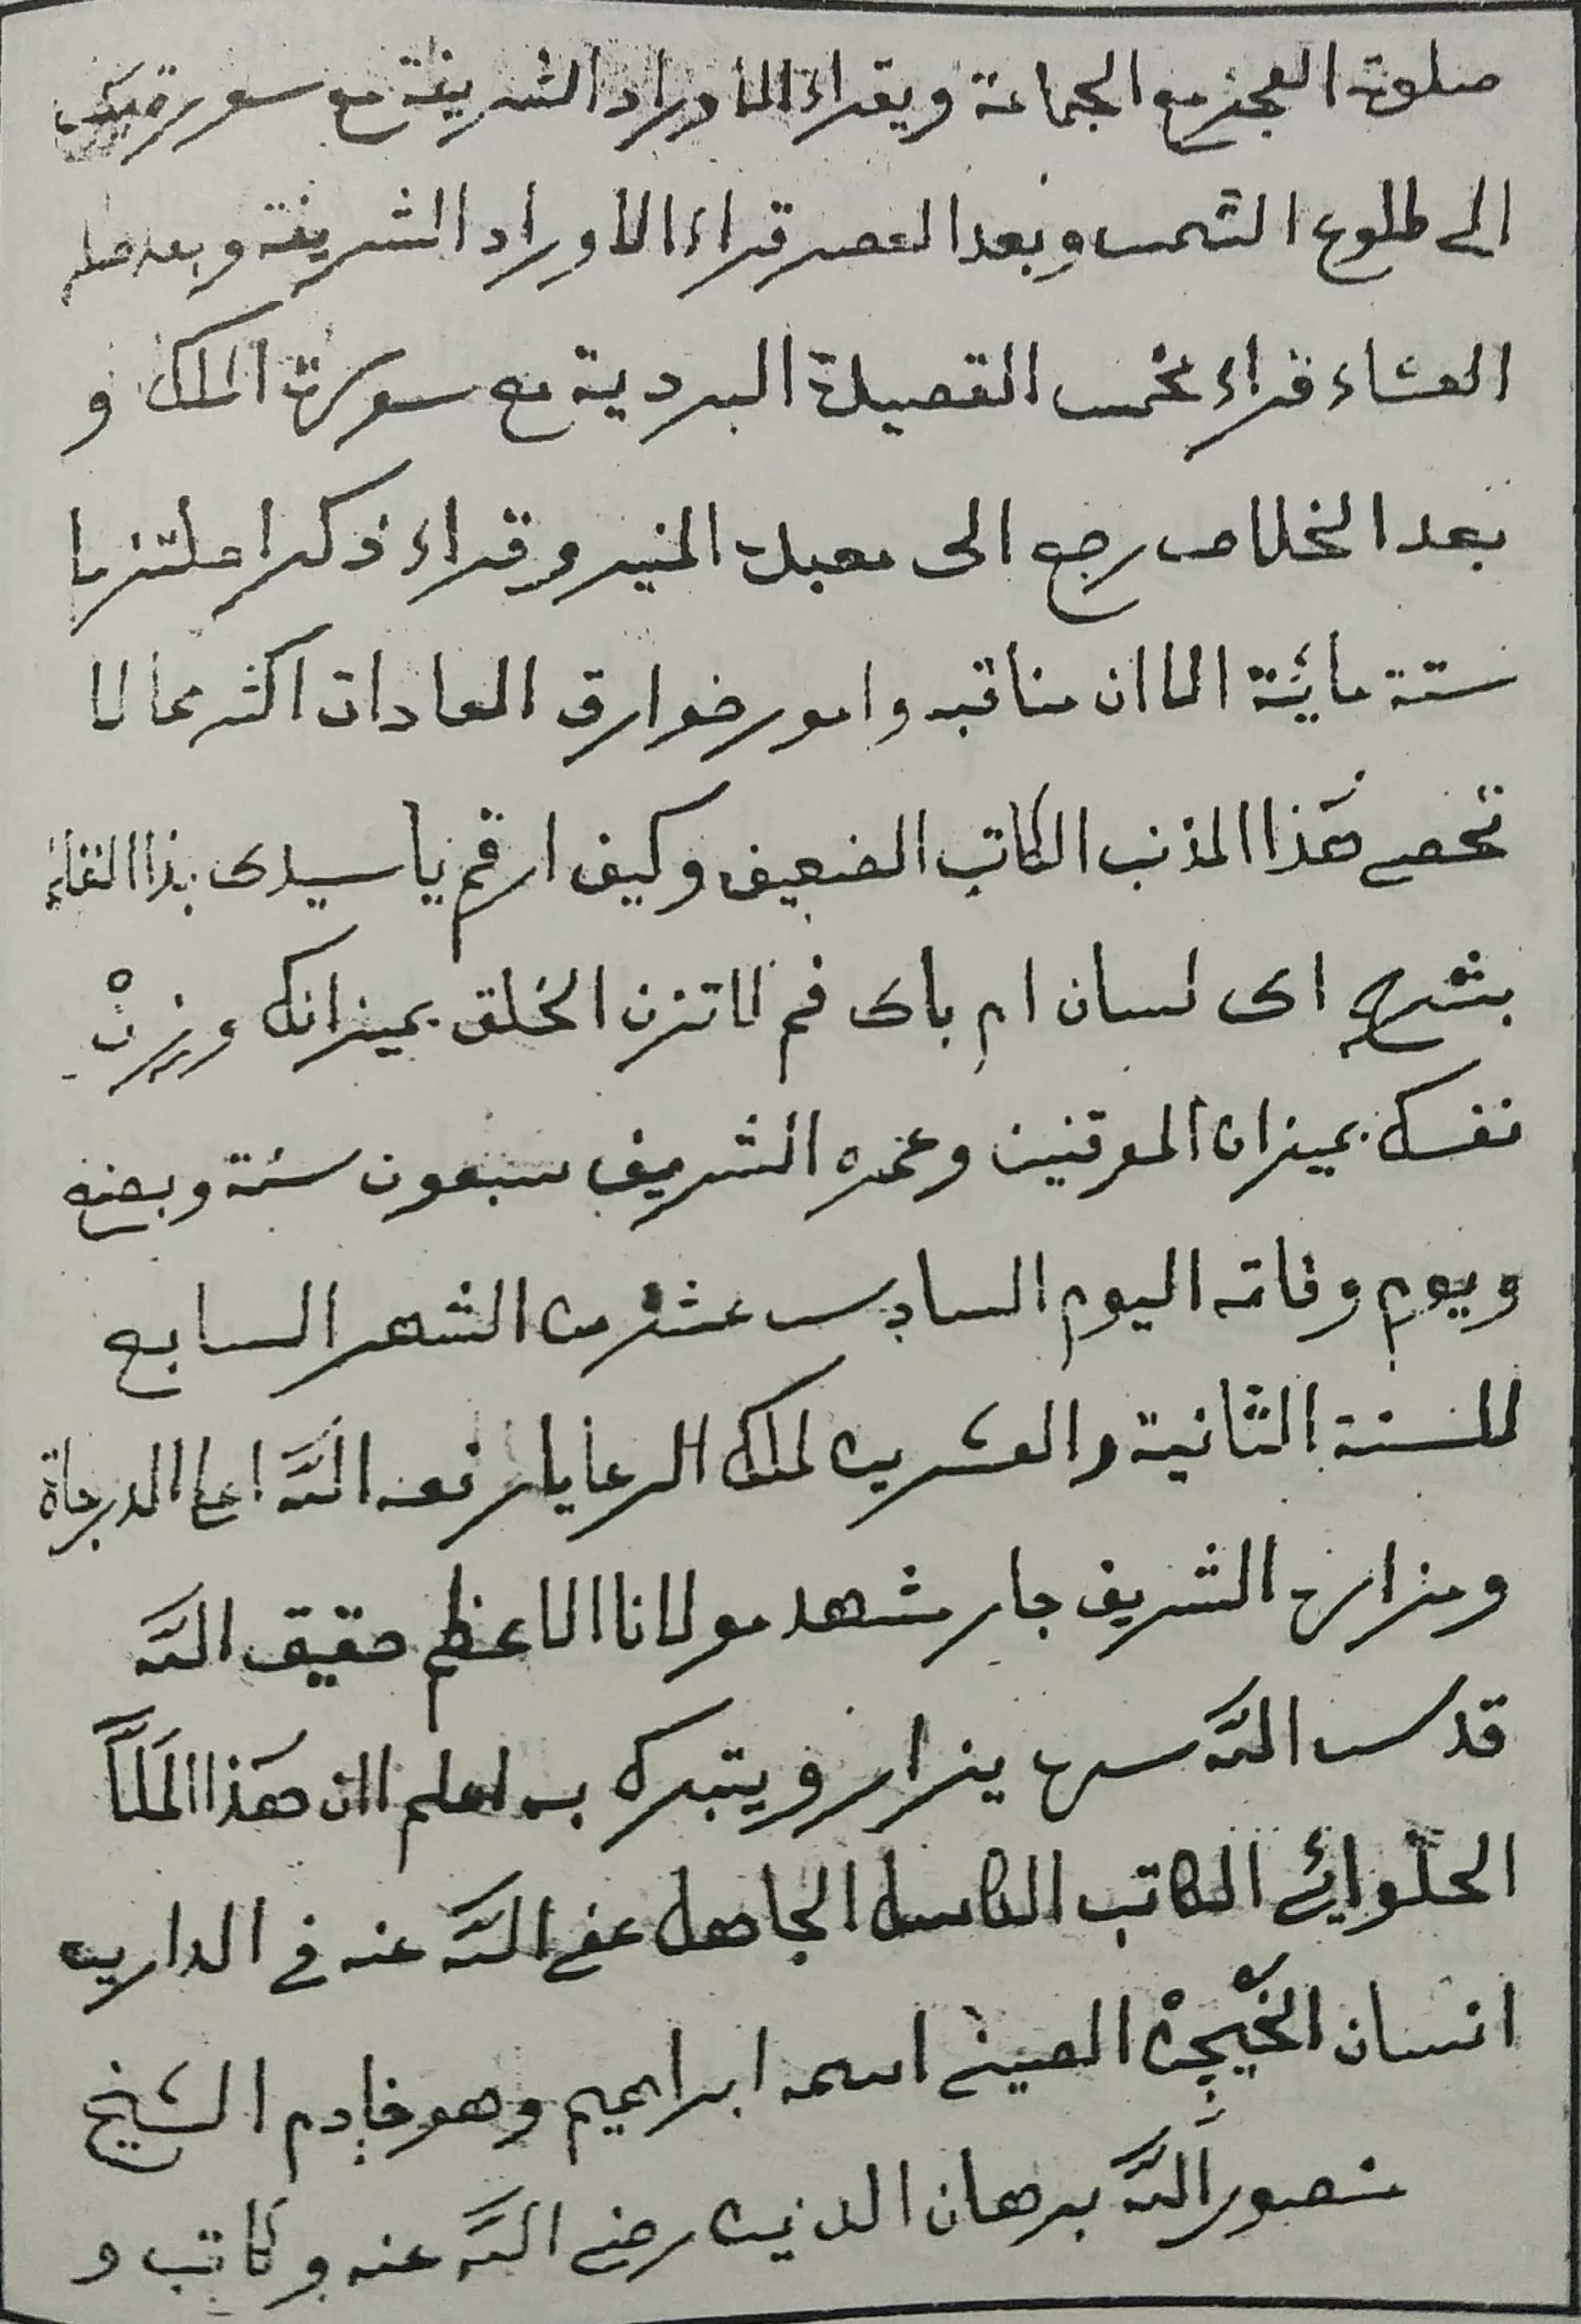 صلوة الفجر مع الجماعة ويقراء الأوراد الشريفة مع سورة
الى طلوع الشمس وبعد العصر قراء الاوراد الشريفة وبعد صلو
العشاء قراء مخمس القصيدة البردية مع سورة الملك و
بعد الخلاص رجع الى معبده المنير وقراء ذكرا ملتزما
ستة مائة الا ان مناقبه وامور خوارق العادات اكثر مما لا
تحصى هٰذا المذنب الكاتب الضعيف وكيف ارقم يا سيدى بذا القلم
بشرح اى لسان ام باى فم لا تزن الخلق بميزانك وزنْ
نفسك بميزان الموقنين وعمره الشريف سبعون سنة وبضع
ويوم وفاته اليوم السادس عشر من الشهر السابع
للسنة الثانية والعشرين لملك الرعايا رفعه اللّه اعلى الدرجاة
ومزاره الشريف جار مشهد مولانا الاعظم حقيق اللّه
قدس اللّه سره يزار ويتبرك به اعلم ان هٰذا الملّا
الحلوائى الكاتب الكاسل الجاهل عفى اللّه عنه فى الدارين
انسان الصينى اسمه ابراهيم وهو خادم الشيخ
منصور اللّه برهان الدين رضى اللّه عنه وكاتب و